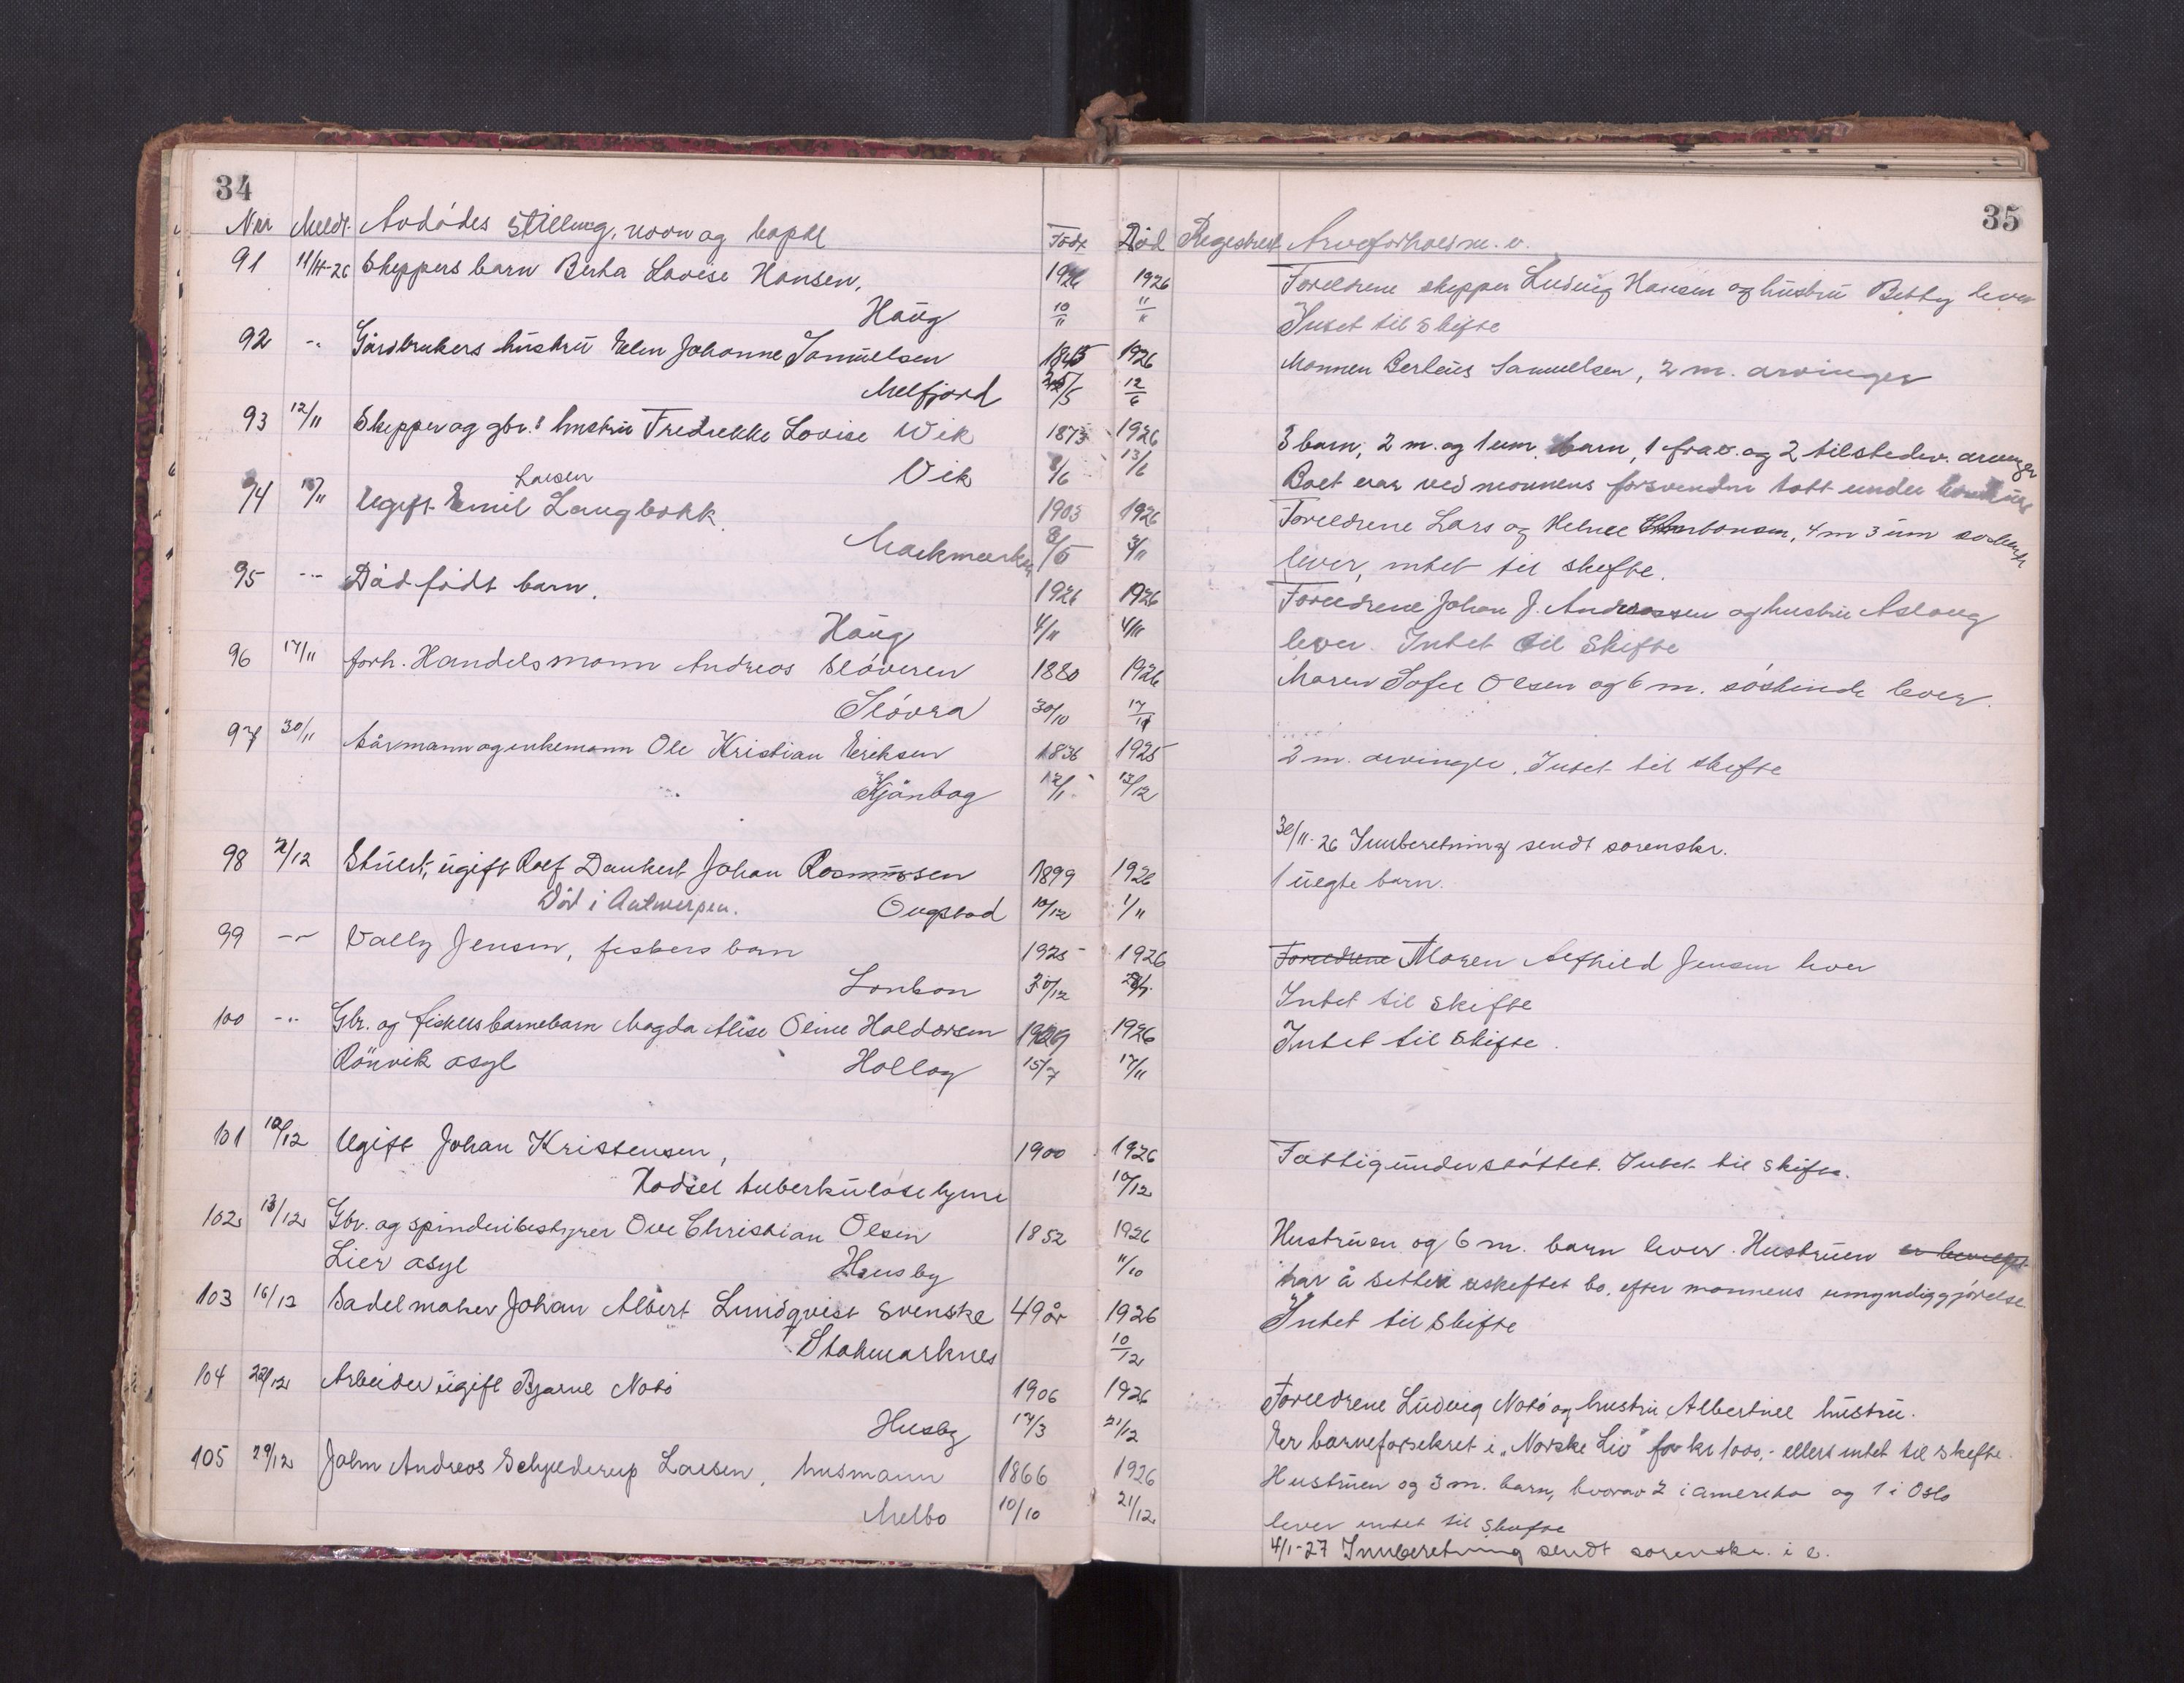 34
35
Nr Meldt. Avdødes stilling, navn og bopel Født Død Registrert Arveforhol m. v.
91 11/11-26 Skippers barn Berta Lovise Hansen, 1926 1926 Foreldrene skipper Ludvig Hansen og hustru Betty lever
Haug 10/11 11/11 Intet til skifte
92 -"- Gårdbrukers hustru Elen Johanne Samuelsen 1845 1926 Mannen Berteus Samuelsen, 2 m. arvinger
Melfjord 25/5 12/6
93 12/11 Skipper og gbr.s hustru Fredrekke Lovise Wik 1873 1926 3 barn, 2 m. og 1 um. barn, 1 frav. og 2 tilstedev. arvinger
Vik 8/6 13/6 Boet var ved mannens forsvinden tatt under
94 15/11 Ugift Emil Larsen Langbakk 1903 1926 Foreldrene Lars og Helene, 4 m 3 um søskende
8/5 3/11 lever, intet til skifte.
95 -"- Dødfødt barn. 1926 1926 Foreldrene Johan J. Andreassen og hustru Aslaug
Haug 4/11 4/11 lever. Intet til skifte
96 17/11 forh. Handelsmann Andreas Sløveren 1880 1926 Maren Sofie Olsen og 6 m. søskende lever.
Sløvra 30/10 17/11
97 30/11 Kårmann og enkemann Ole Kristian Eriksen 1836 1925 2 m. arvinger. Intet til skifte
12/1 13/12
30/11-26 Innberetning sendt sorenskr.
98 2/12 Stuert, ugift Rolf Dankert Johan Rasmussen 1899 1926 1 uegte barn.
Død i Antwerpen. Ongstad 10/12 1/11
99 -"- Vally Jensen, fiskers barn 1925 1926 Foreldrene Moren Alfhild Jensen lever
Lonkan 30/12 Intet til skifte
100 -"- Gbr. og fiskers barnebarn Magda Alise Oline Haldorsen 1926 Intet til skifte.
Rönvik asyl Hollag 15/7 17/11
101 10/12 Ugift Johan Kristensen, 1900 1926 Fattigunderstøttet. Intet til skifte.
Hadsel tuberkulosehjem 10/12
102 13/12 Gbr. og spinderibestyrer Ove Christian Olsen 1852 1926 Hustruen og 6 m. barn lever. Hustruen er bevilget
Lier asyl Husby 11/10 har å sitte i uskiftet bo. efter mannens umyndiggjørelse
103 16/12 Sadelmaker Johan Albert Lundqvist svenske 49 år 1926 Intet til skifte
Stokmarknes 10/12
104 22/12 Arbeider ugift Bjarne Notø 1906 1926 Foreldrene Ludvig Notø og hustru Albertine hustru.
Husby 14/3 21/12 Er barneforsikret i "Norske Liv" for kr 1000,- ellers intet til skifte.
105 29/12 John Andreas Schjelderup Larsen, husmann 1866 1926 Hustruen og 3 m. barn, hvorav 2 i amerika og 1 i Oslo
Melbo 10/10 21/12 lever intet til skifte
4/1-27 Innberetning sendt sorenskr. i e.